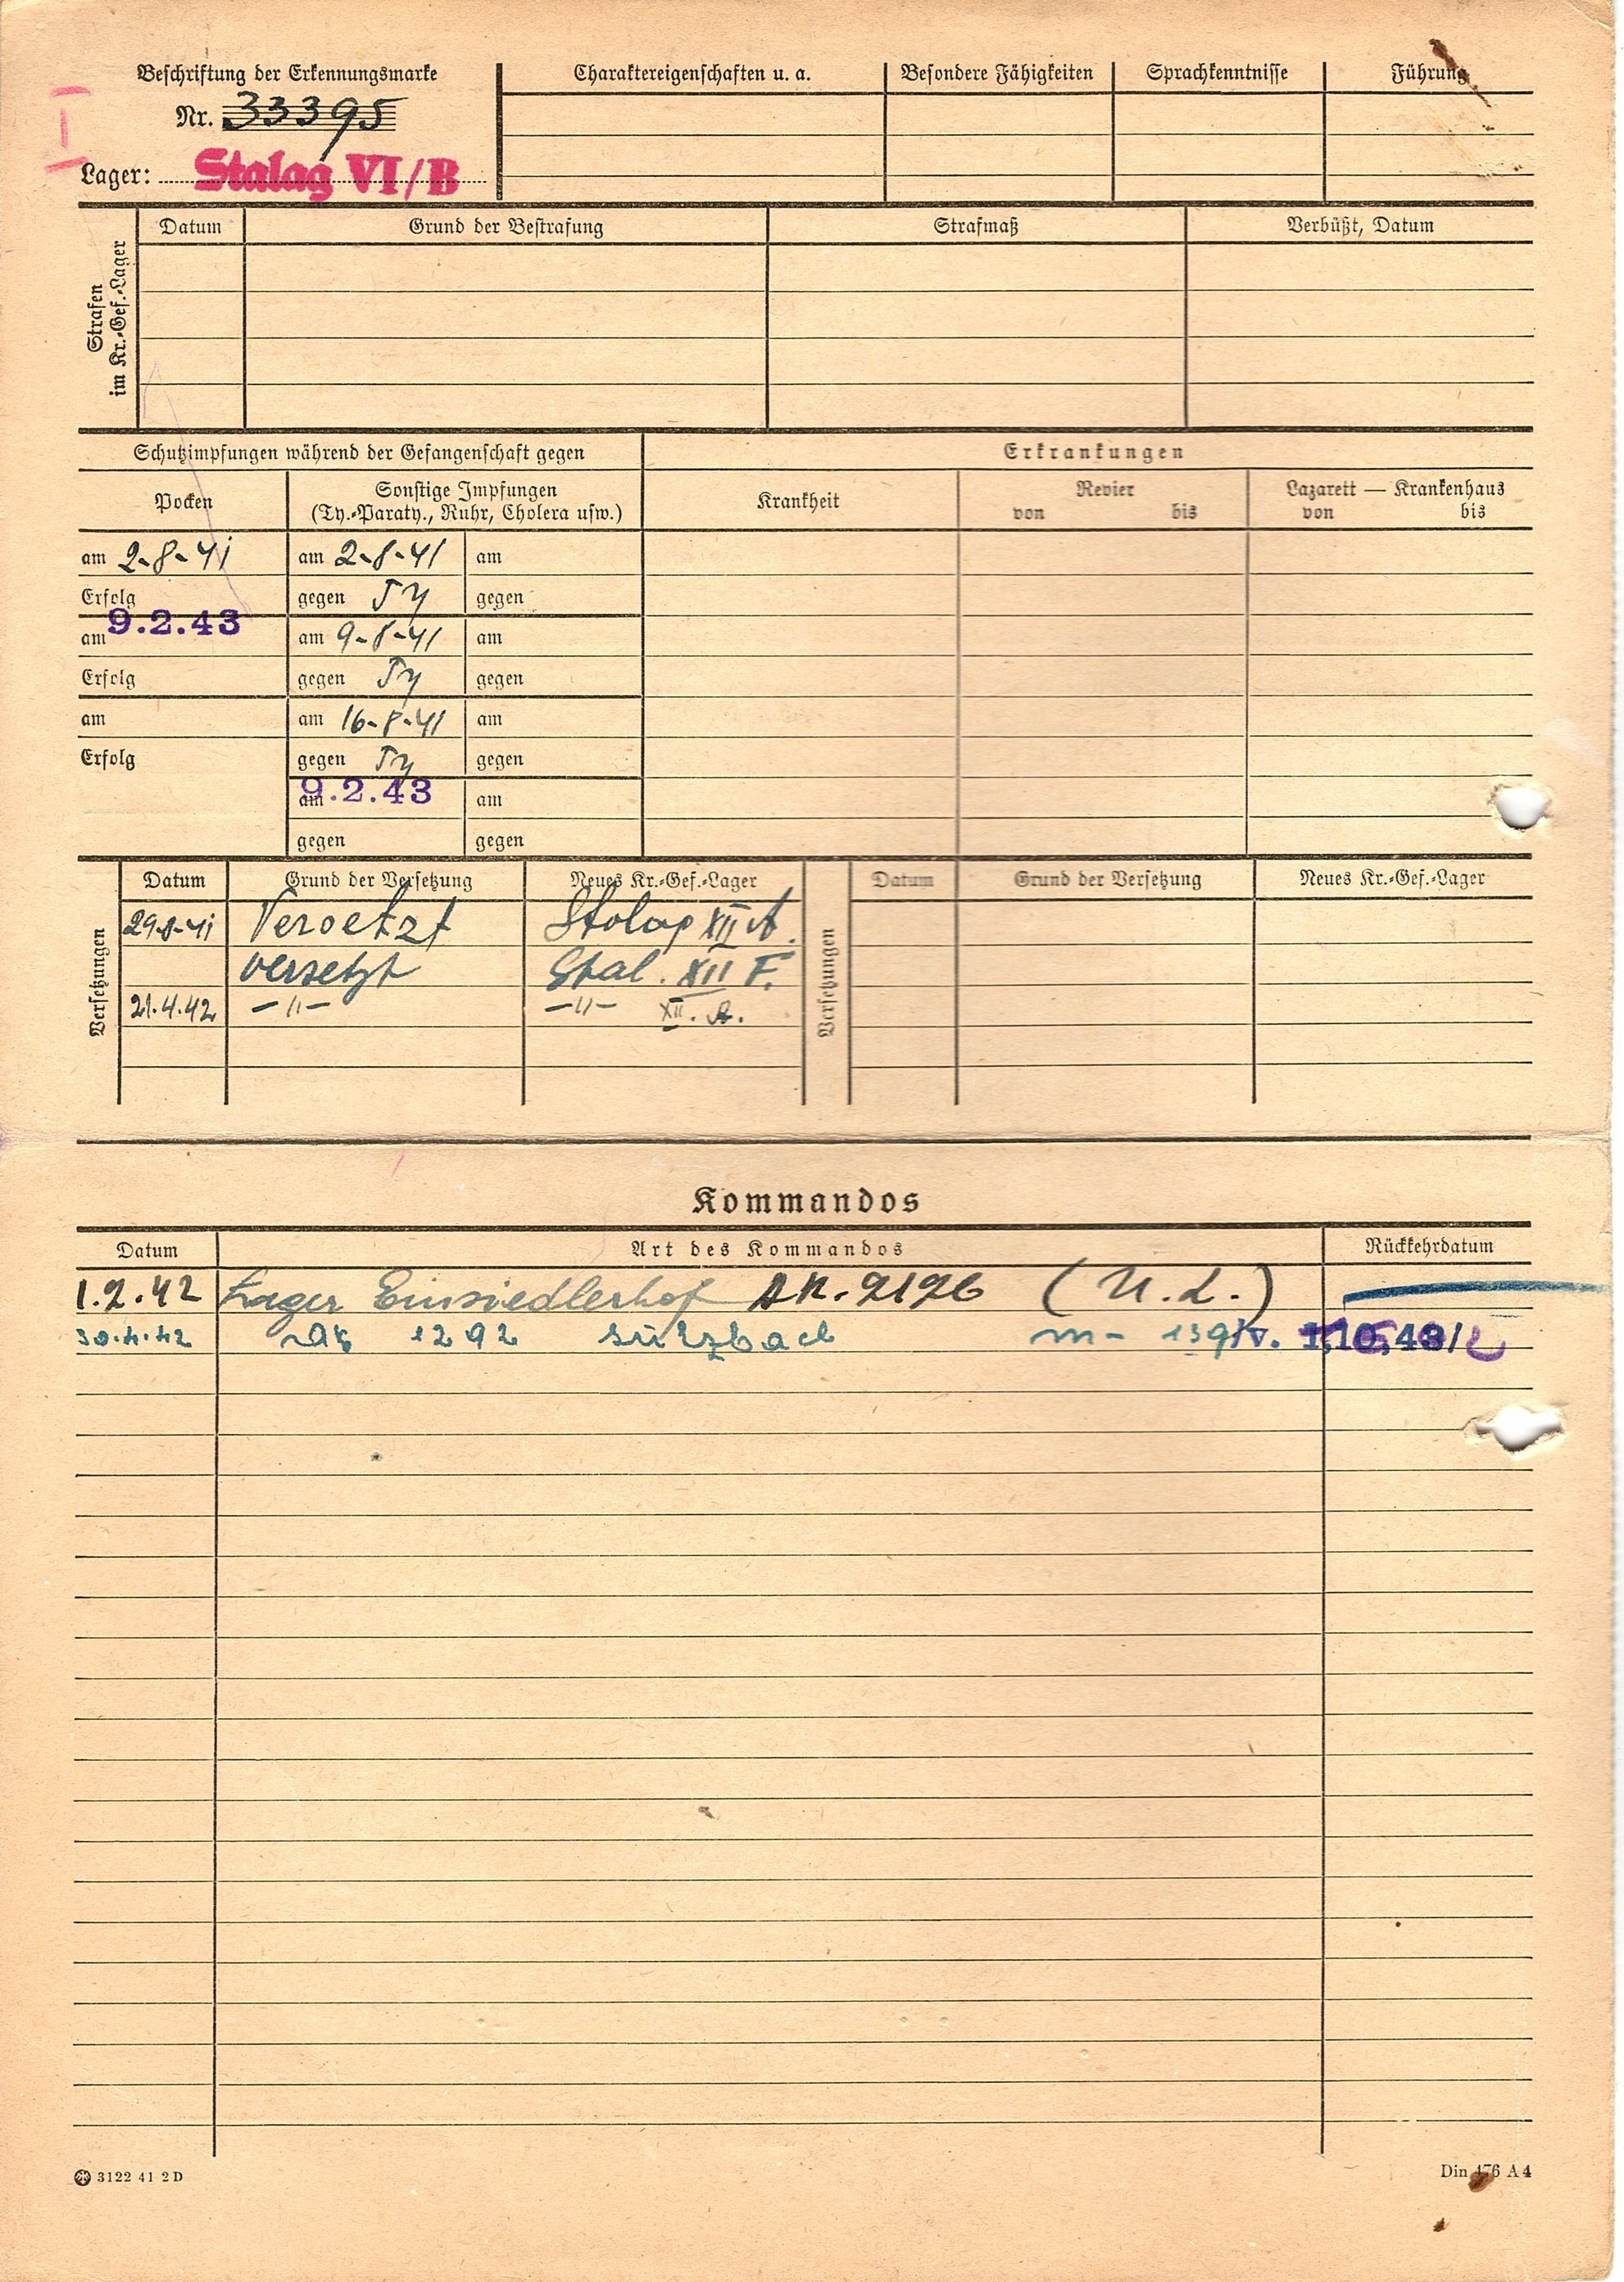 Beschriftung der Erkennungsmarke
Nr. 33395
Lager: Stalag VI/B
I
Charaktereigenschaften u. a. Besondere Fähigkeiten Sprachkenntnisse Führung
Strafen im Kr.-Gef.-Lager
Datum Grund der Bestrafung Strafmaß Verbüßt, Datum
Schutzimpfungen während der Gefangenschaft gegen
Erkrankungen
Pocken
Sonstige Impfungen
(Ty.-Paraty., Ruhr, Cholera usw.)
Krankheit
Revier
von bis
Lazarett — Krankenhaus
von bis
am 2-8-41 am 2-8-41 am
Erfolg gegen Ty gegen
am 9.2.43 am 9-8-41 am
Erfolg gegen Ty gegen
am am 16-8-41 am
Erfolg gegen Ty gegen
am 9.2.43 am
gegen gegen
Versetzungen
Datum Grund der Versetzung Neues Kr.-Gef.-Lager
29-8-41 Versetzt Stalag XII A.
versetzt Stal. XII F.
21.4.42 —"— —"— XII. A.
Versetzungen
Datum Grund der Versetzung Neues Kr.-Gef.-Lager
Kommandos
Datum Art des Kommandos Rückkehrdatum
1.2.42 Lager Einsiedlerhof AK. 2126 (U.L.)
30.4.42 AK 1292 Sulzbach m- 139/IV. 1.10.43/2
3122 41 2D
Din 476 A4